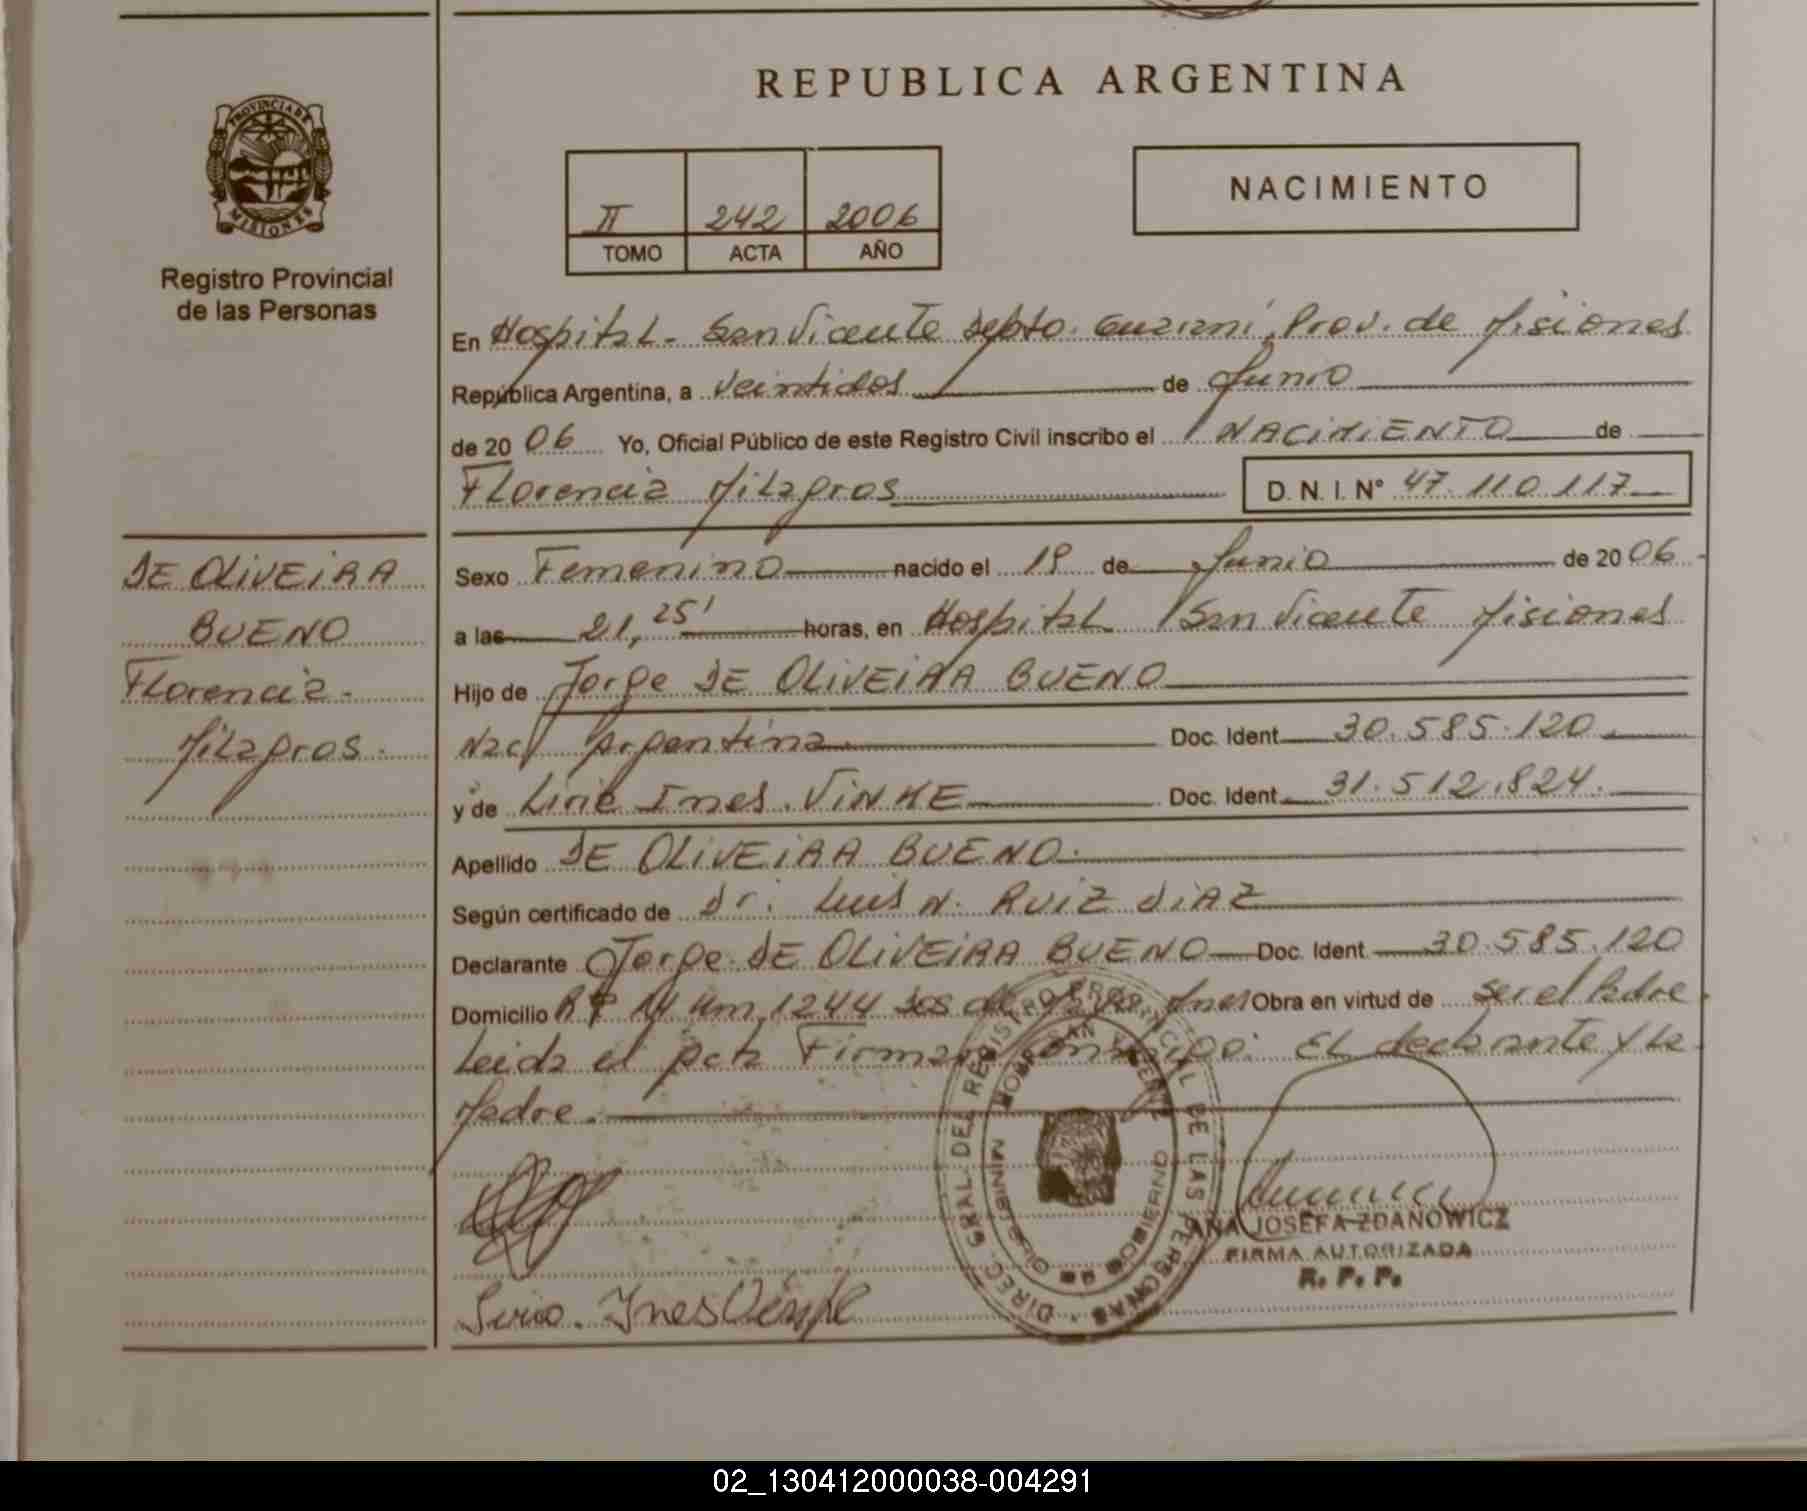 REPUBLICA ARGENTINA
PROVINCIA DE
MISIONES
Registro Provincial
de las Personas
II 242 2006
TOMO ACTA AÑO
NACIMIENTO
En Hospital - San Vicente Depto. Guaraní, Prov. de Misiones
República Argentina, a veintidos de Junio
de 2006 Yo, Oficial Público de este Registro Civil inscribo el NACIMIENTO de
Florencia Milagros D. N. I. N° 47.110.117
DE OLIVEIRA
BUENO
Florencia
Milagros
Sexo Femenino nacido el 19 de Junio de 2006
a las 21,25' horas, en Hospital San Vicente Misiones
Hijo de Jorge DE OLIVEIRA BUENO
Nac Argentina Doc. Ident 30.585.120
y de Ines Doc. Ident 31.512.824.
Apellido DE OLIVEIRA BUENO.
Según certificado de Dr. Luis N. RUIZ DIAZ
Declarante Jorge DE OLIVEIRA BUENO Doc. Ident 30.585.120
Domicilio 14 Km 1244 Obra en virtud de ser el Padre
Leida el acta Firman conmigo: El declarante y la
Madre.
DIREC. GRAL. DEL REGISTRO PROVINCIAL DE LAS PERSONAS
Ines
ANA JOSEFA ZDANOWICZ
FIRMA AUTORIZADA
R. P. P.
02_130412000038-004291